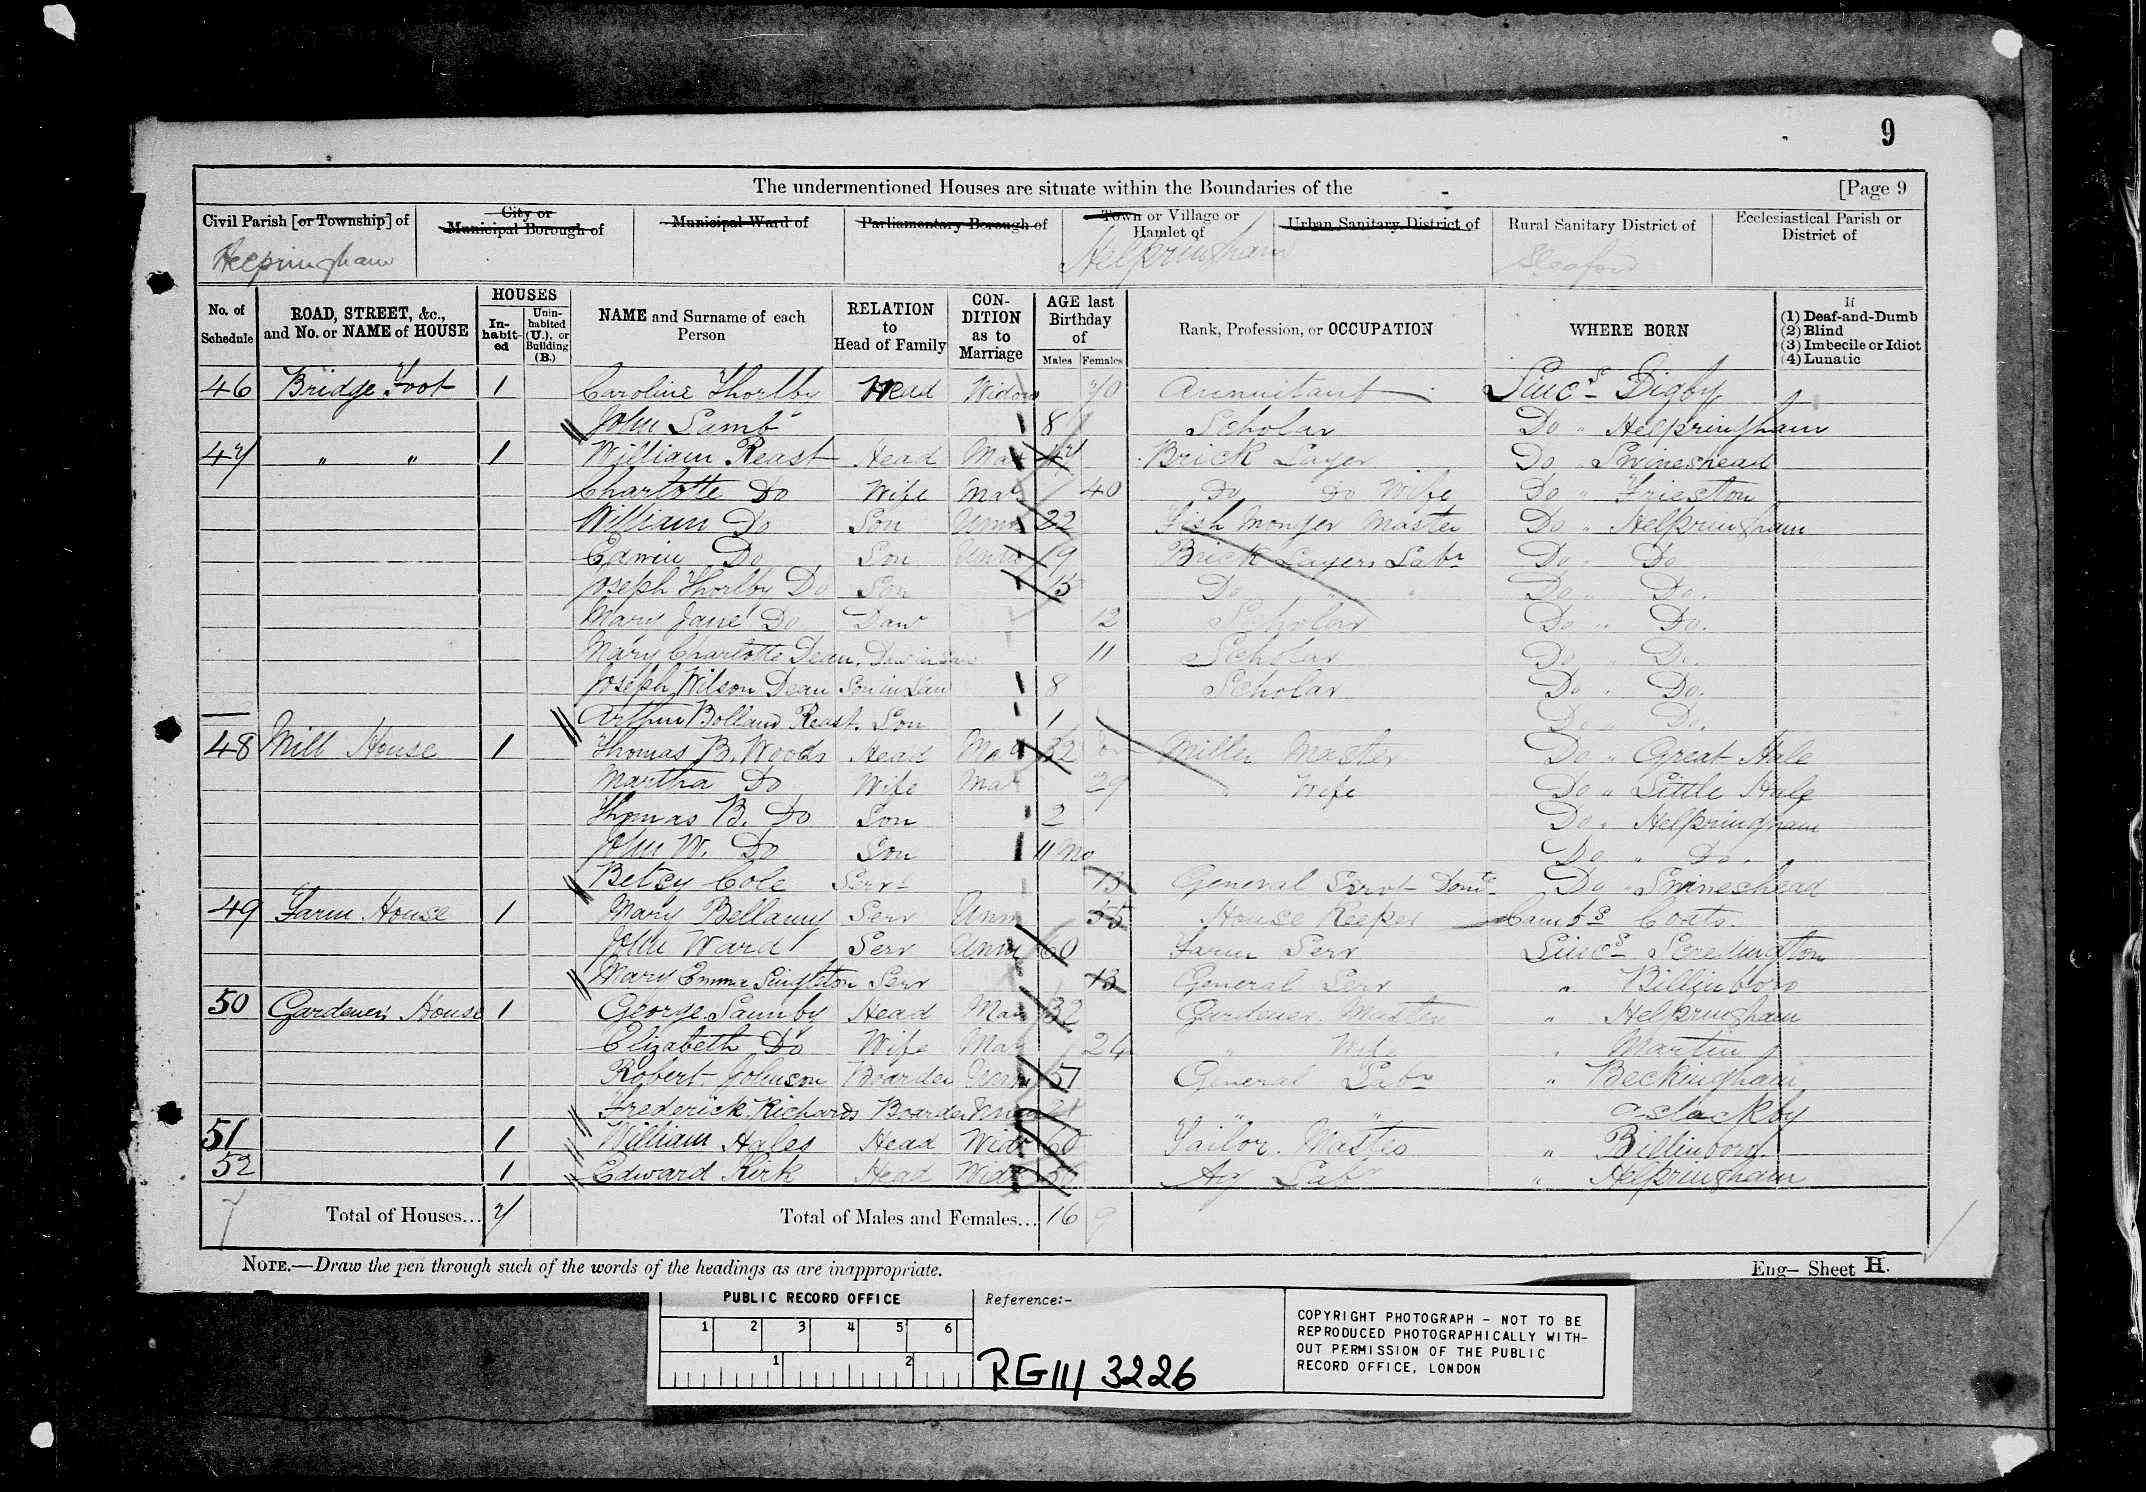 9
The undermentioned Houses are situate within the Boundaries of the [Page 9
Civil Parish [or Township] of
City or Municipal Borough of
Municipal Ward of
Parliamentary Borough of
Town or Village or Hamlet of
Urban Sanitary District of
Rural Sanitary District of
Ecclesiastical Parish or District of
Helpringham Helpringham Sleaford
No. of Schedule
ROAD, STREET, &c., and No. or NAME of HOUSE
HOUSES
In-habit-ed
Unin-habited (U.), or Building (B.)
NAME and Surname of each Person
RELATION to Head of Family
CON-DITION as to Marriage
AGE last Birthday of
Males Females
Rank, Profession, or OCCUPATION
WHERE BORN
If
(1) Deaf-and-Dumb
(2) Blind
(3) Imbecile or Idiot
(4) Lunatic
46 Bridge Foot 1 Caroline Thorlby Head Widow 70 Annuitant Lincs Digby
John Lamb 8 Scholar Do " Helpringham
47 " " 1 William Reast Head Mar Brick Layer Do " Swineshead
Charlotte Do Wife Mar 40 Do Do Wife Do " Frieston
William Do Son Unm 22 Fish Monger Master Do " Helpringham
Edwin Do Son Unm 19 Brick Layers Labr Do " Do
Joseph Thorlby Do Son 15 Do Do " Do.
Mary Jane Do Daur 12 Scholar Do " Do.
Mary Charlotte Dean. Daur in Law 11 Scholar Do " Do.
Joseph Wilson Dean Son in Law 8 Scholar Do " Do.
Arthur Bolland Reast. Son 1 Do Do.
48 Mill House 1 Thomas B. Woods Head Mar 32 Miller Master Do " Great Hale
Martha Do Wife Mar 29 Wife Do " Little Hale
Thomas B. Do Son 2 Do " Helpringham
John W. Do Son 11 Mo Do " Do.
Betsy Cole Servt 13 General Servt Domc Do " Swineshead
49 Farm House 1 Mary Bellamy Serv Unm 55 House Keeper Cambs Coats.
John Ward Serv Unm 60 Farm Serv Lincs Scredington
Mary Emma Singleton Serv 13 General Serv " Billinboro
50 Gardeners House 1 George Saunby Head Mar 32 Gardener Master " Helpringham
Elizabeth Do Wife Mar 24 " Wife " Martin
Robert Johnson Boarder Unm 57 General Labr " Beckingham
Frederick Richards Boarder Unm " " Aslackby
51 1 William Hales Head Widr 60 Tailor. Master " Billinboro
52 1 Edward Kirk Head Widr Ag Labr " Helpringham
7 Total of Houses... 7 Total of Males and Females... 16 9
NOTE.—Draw the pen through such of the words of the headings as are inappropriate.
Eng— Sheet H.
PUBLIC RECORD OFFICE
1 2 3 4 5 6
1 2
Reference:-
RG 11/ 3226
COPYRIGHT PHOTOGRAPH – NOT TO BE
REPRODUCED PHOTOGRAPHICALLY WITH-
OUT PERMISSION OF THE PUBLIC
RECORD OFFICE, LONDON